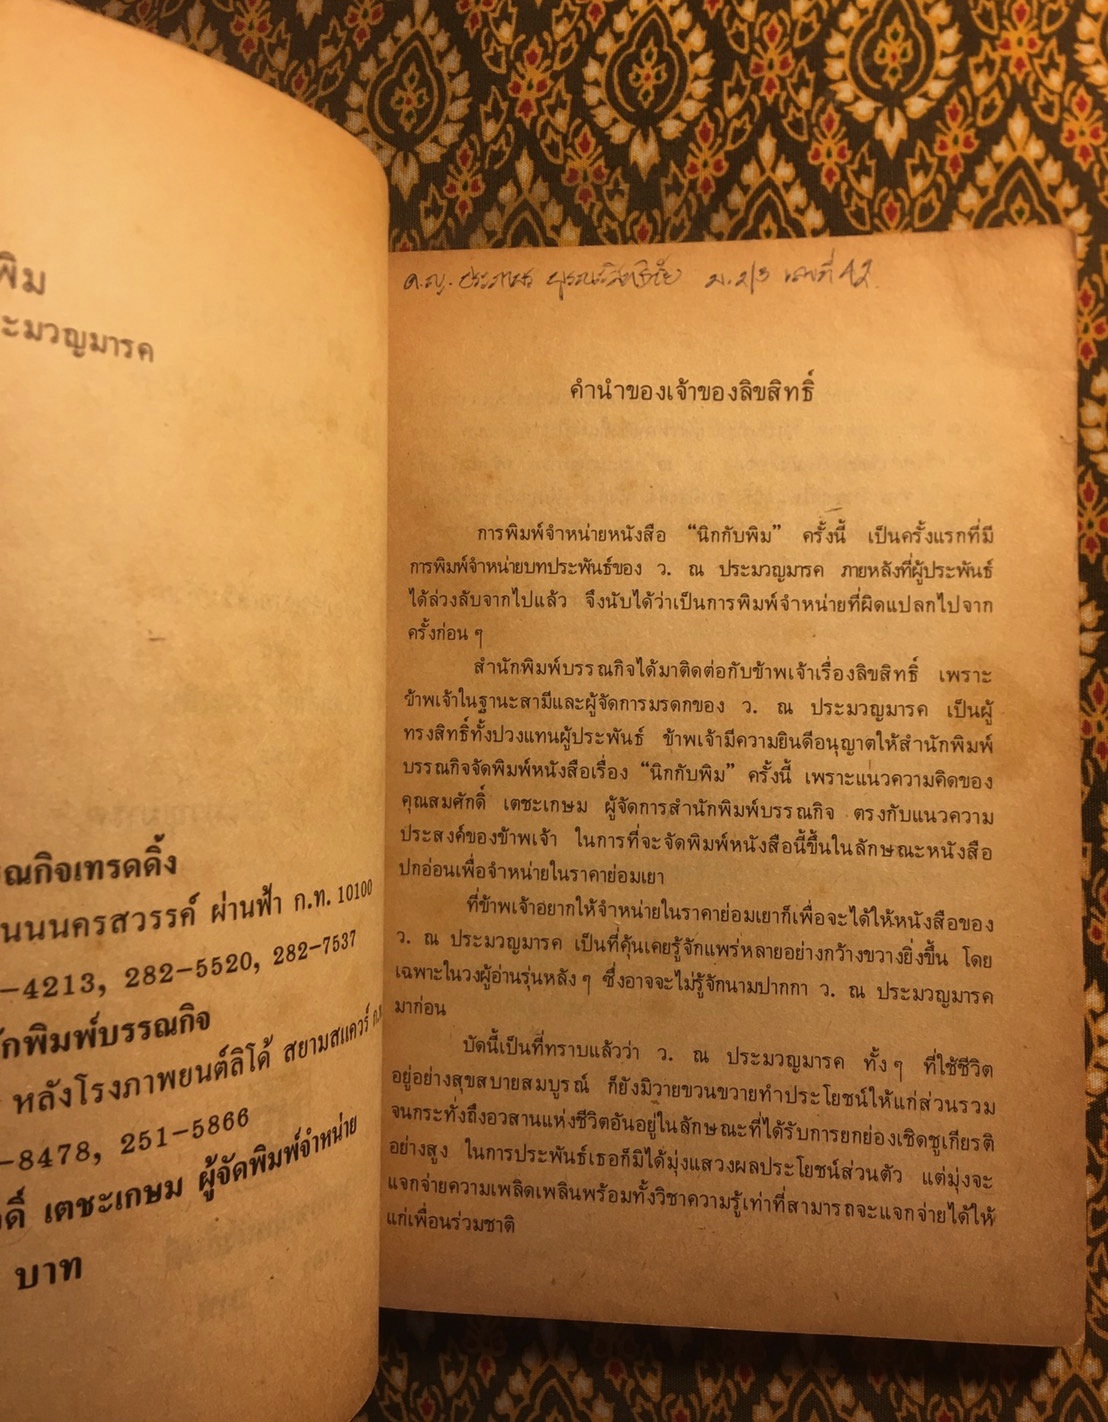 พิม
ะมวญมารค
รณกิจเทรดดิ้ง
นนนครสวรรค์ ผ่านฟ้า ก.ท. 10100
–4213, 282–5520, 282–7537
ักพิมพ์บรรณกิจ
หลังโรงภาพยนต์ลิโด้ สยามสแควร์
–8478, 251–5866
ดิ์ เตชะเกษม ผู้จัดพิมพ์จำหน่าย
บาท
ด.ญ. ม.2/3 เลขที่ 42
คำนำของเจ้าของลิขสิทธิ์
การพิมพ์จำหน่ายหนังสือ “นิกกับพิม” ครั้งนี้ เป็นครั้งแรกที่มี
การพิมพ์จำหน่ายบทประพันธ์ของ ว. ณ ประมวญมารค ภายหลังที่ผู้ประพันธ์
ได้ล่วงลับจากไปแล้ว จึงนับได้ว่าเป็นการพิมพ์จำหน่ายที่ผิดแปลกไปจาก
ครั้งก่อน ๆ
สำนักพิมพ์บรรณกิจได้มาติดต่อกับข้าพเจ้าเรื่องลิขสิทธิ์ เพราะ
ข้าพเจ้าในฐานะสามีและผู้จัดการมรดกของ ว. ณ ประมวญมารค เป็นผู้
ทรงสิทธิ์ทั้งปวงแทนผู้ประพันธ์ ข้าพเจ้ามีความยินดีอนุญาตให้สำนักพิมพ์
บรรณกิจจัดพิมพ์หนังสือเรื่อง “นิกกับพิม” ครั้งนี้ เพราะแนวความคิดของ
คุณสมศักดิ์ เตชะเกษม ผู้จัดการสำนักพิมพ์บรรณกิจ ตรงกับแนวความ
ประสงค์ของข้าพเจ้า ในการที่จะจัดพิมพ์หนังสือนี้ขึ้นในลักษณะหนังสือ
ปกอ่อนเพื่อจำหน่ายในราคาย่อมเยา
ที่ข้าพเจ้าอยากให้จำหน่ายในราคาย่อมเยาก็เพื่อจะได้ให้หนังสือของ
ว. ณ ประมวญมารค เป็นที่คุ้นเคยรู้จักแพร่หลายอย่างกว้างขวางยิ่งขึ้น โดย
เฉพาะในวงผู้อ่านรุ่นหลัง ๆ ซึ่งอาจจะไม่รู้จักนามปากกา ว. ณ ประมวญมารค
มาก่อน
บัดนี้เป็นที่ทราบแล้วว่า ว. ณ ประมวญมารค ทั้ง ๆ ที่ใช้ชีวิต
อยู่อย่างสุขสบายสมบูรณ์ ก็ยังมิวายขวนขวายทำประโยชน์ให้แก่ส่วนรวม
จนกระทั่งถึงอวสานแห่งชีวิตอันอยู่ในลักษณะที่ได้รับการยกย่องเชิดชูเกียรติ
อย่างสูง ในการประพันธ์เธอก็มิได้มุ่งแสวงผลประโยชน์ส่วนตัว แต่มุ่งจะ
แจกจ่ายความเพลิดเพลินพร้อมทั้งวิชาความรู้เท่าที่สามารถจะแจกจ่ายได้ให้
แก่เพื่อนร่วมชาติ